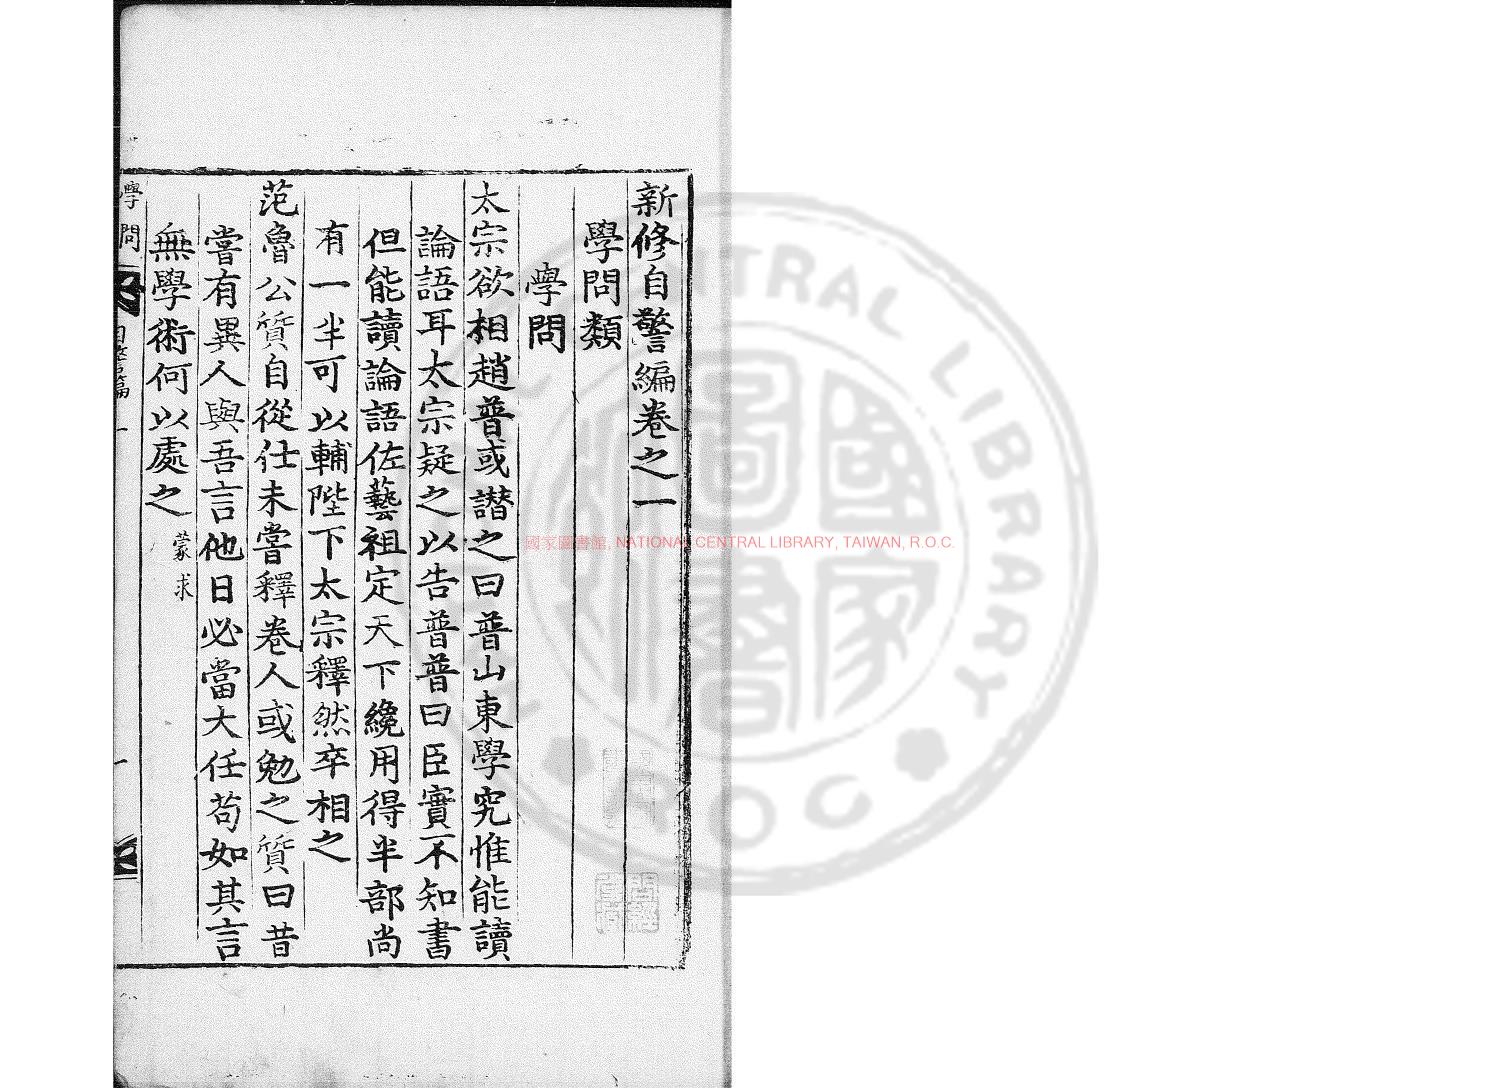 新修自警編卷之一
學問類
學問
太宗欲相趙普或譖之曰普山東學究惟能讀
論語耳太宗疑之以告普普曰臣實不知書
但能讀論語佐藝祖定天下纔用得半部尚
有一半可以輔陛下太宗釋然卒相之
范魯公質自從仕未嘗釋卷人或勉之質曰昔
嘗有異人與吾言他日必當大任苟如其言
無學術何以處之 蒙求
學問
一
國家圖書館, NATIONAL CENTRAL LIBRARY, TAIWAN, R.O.C.